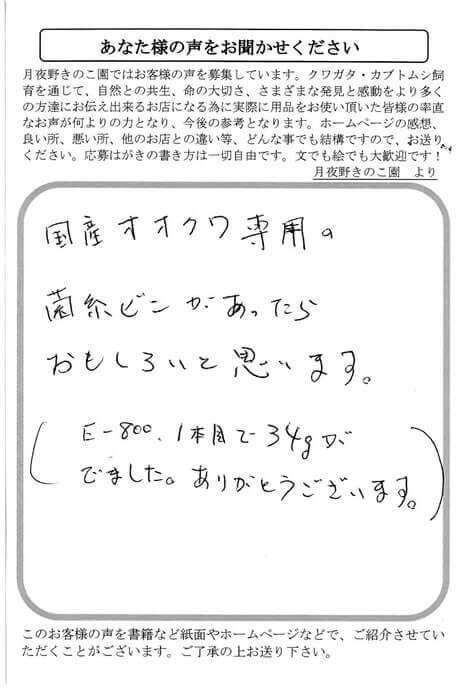 あなた様の声をお聞かせください
月夜野きのこ園ではお客様の声を募集しています。クワガタ・カブトムシ飼
育を通じて、自然との共生、命の大切さ、さまざまな発見と感動をより多く
の方達にお伝え出来るお店になる為に実際に用品をお使い頂いた皆様の率直
なお声が何よりの力となり、今後の参考となります。ホームページの感想、
良い所、悪い所、他のお店との違い等、どんな事でも結構ですので、お送り
ください。応募はがきの書き方は一切自由です。文でも絵でも大歓迎です！
月夜野きのこ園　より
国産オオクワ専用の
菌糸ビンがあったら
おもしろいと思います。
(E-800、1本目で34gが
でました。ありがとうございます。)
このお客様の声を書籍など紙面やホームページなどで、ご紹介させてい
ただくことがございます。ご了承の上お送り下さい。